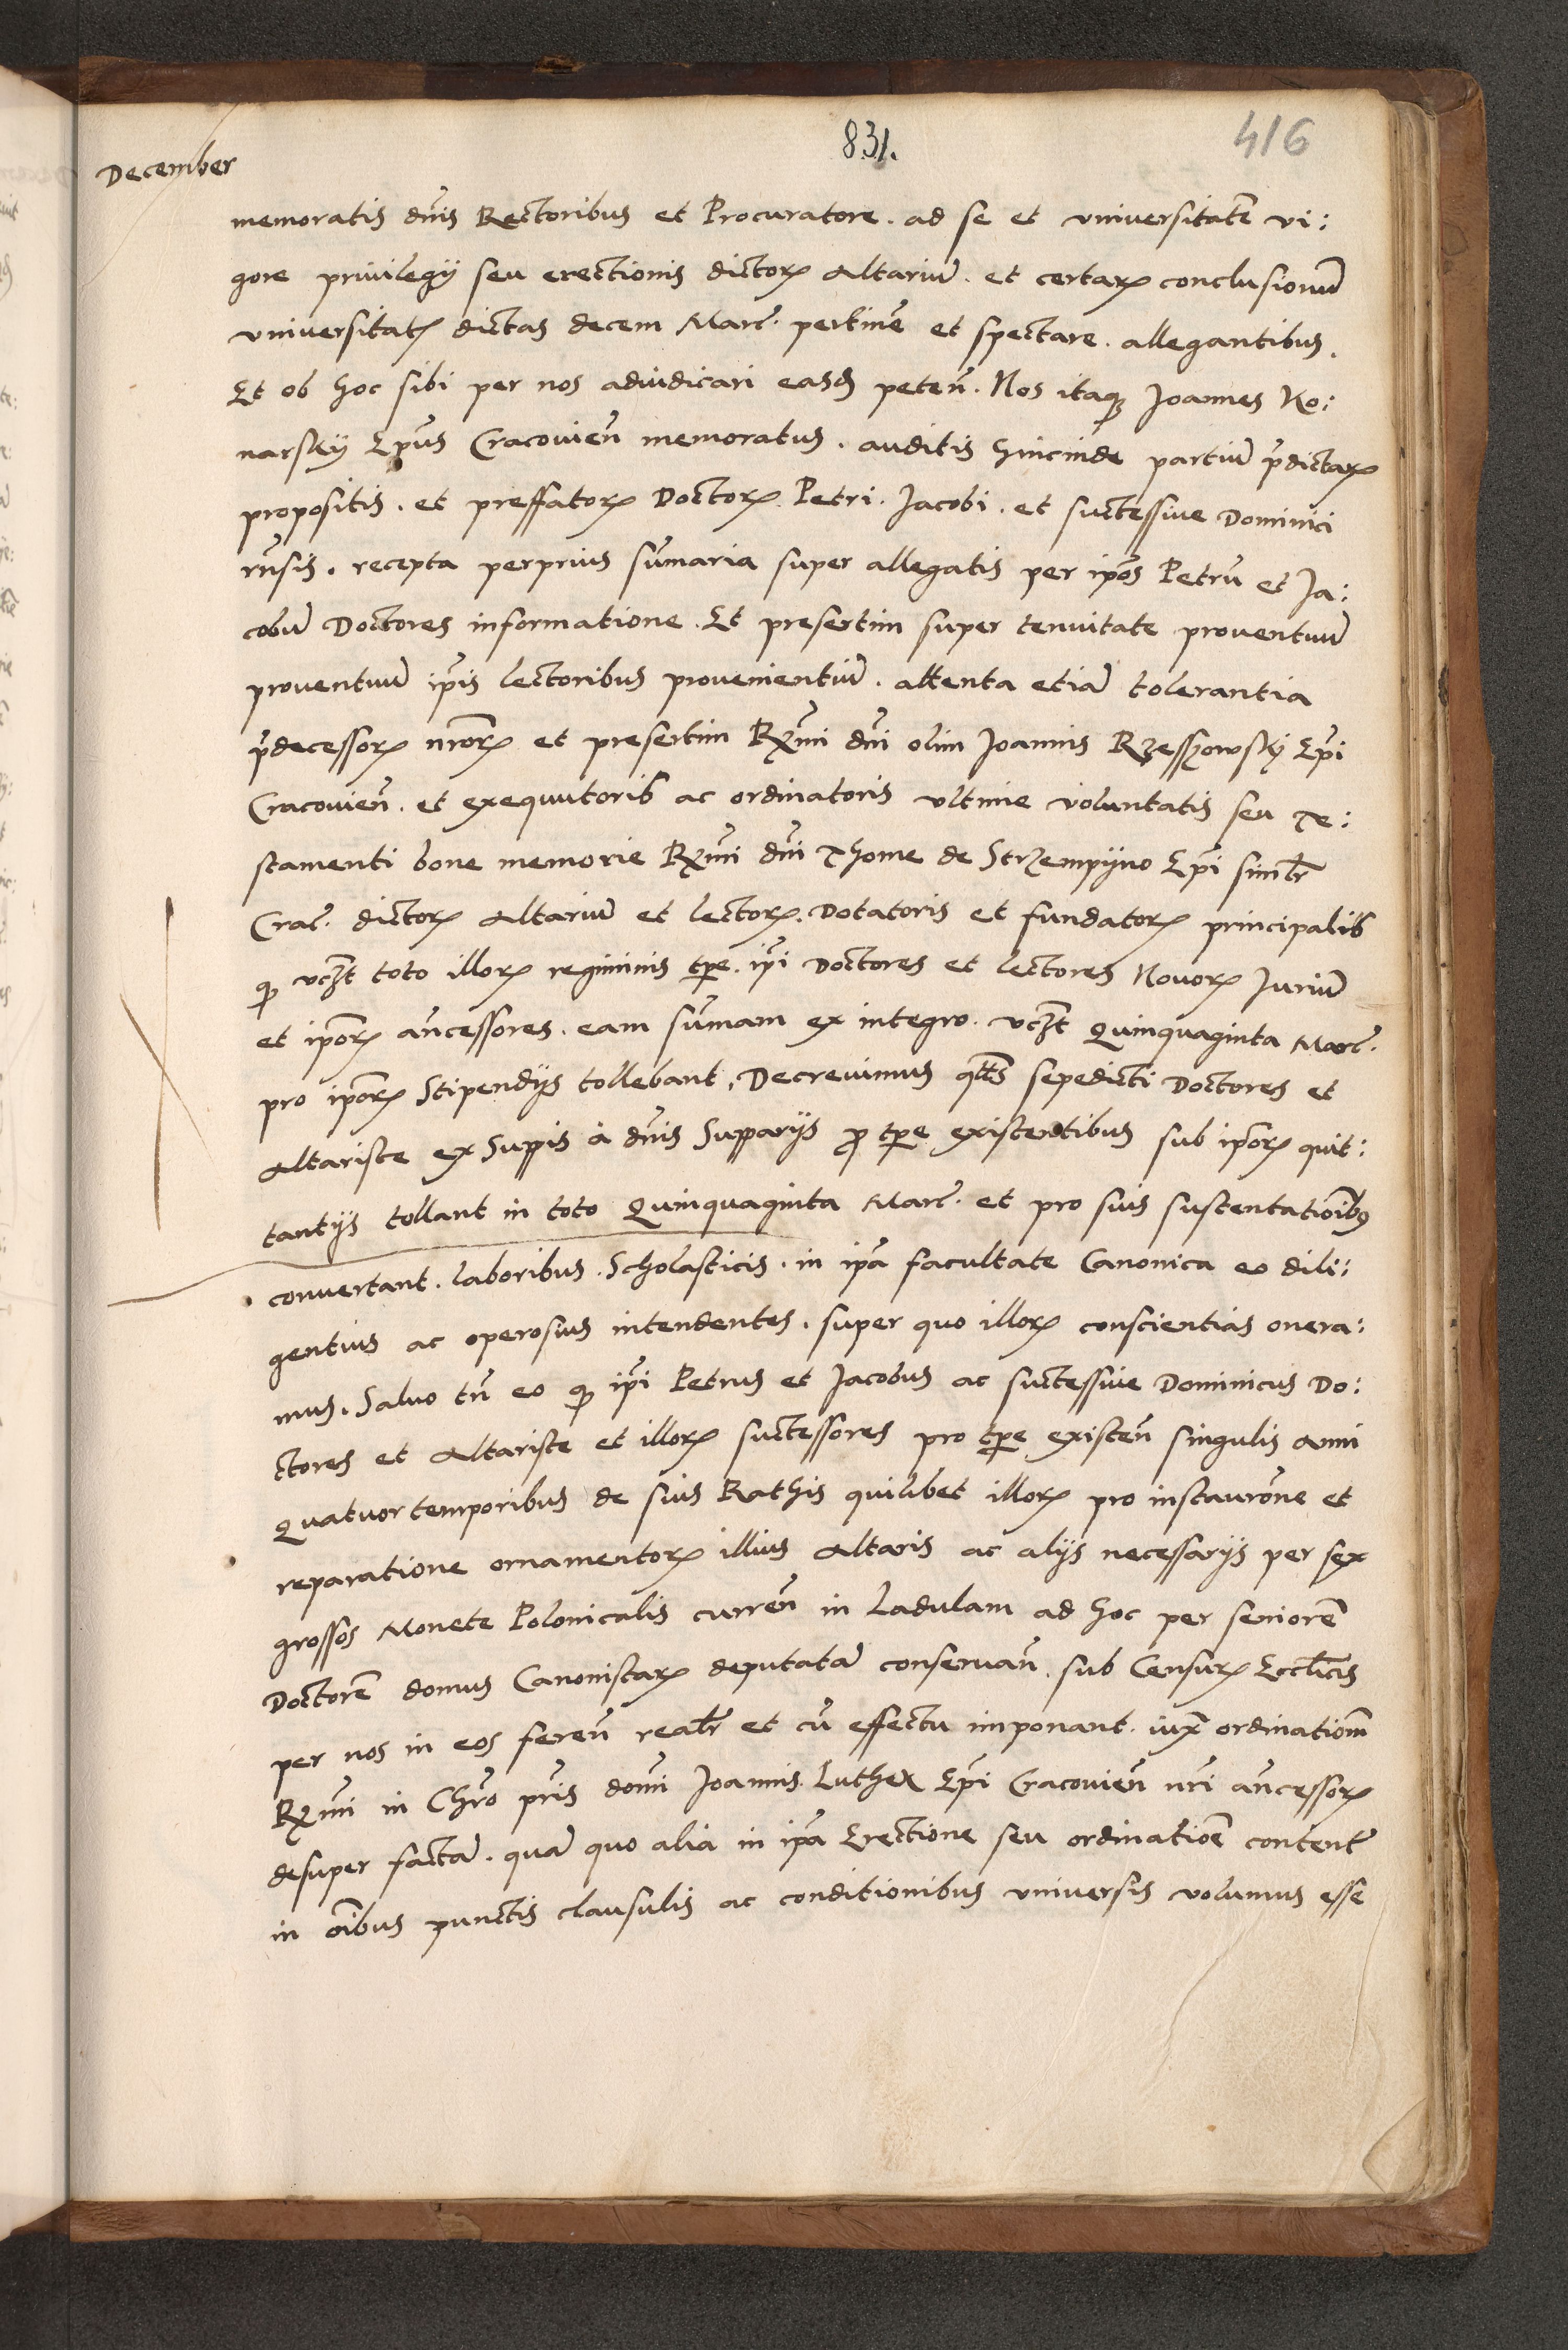 831.
416
December
memoratis dn̄is Rectoribus et Procuratore . ad se et vniversitatē vi:
gore privilegij seu erectionis dictorꝝ Altariū . et certarꝝ conclusionū
vniversitatꝭ dictas decem Marc̄ . pertinē et spectare . allegantibus .
Et ob hoc sibi per nos adiudicari easdꝫ peten̄ . Nos itaqꝫ Joannes Ko:
narskij Ep̄us Cracovien̄ memoratus . auditis hincinde partiū p̄dictarꝝ
propositis . et preffatorꝝ Doctorꝝ Petri . Jacobi . et successive Dominici
rn̄sis . recepta perprius sūmaria super allegatis per ip̄os Petrū et Ja:
cobū Doctores informatione . Et presertim super tenuitate proventuū
proventuū ip̄is lectoribus provenientiū . attenta etiā tolerantia
p̄decessorꝝ nr̄orꝝ et presertim Rx̄mi dn̄i olim Joannis Rzesszowskij Ep̄i
Cracovien̄ . et exequutoris ac ordinatoris vltimie voluntatis seu Te:
stamenti bone memorie Rx̄mi dn̄i Thome de Strzempijno Ep̄i simlr̄
Crac̄ . dictorꝝ Altariū et lectorꝝ . Dotatoris et fundatorꝝ principalis
qꝫ vcꝫt toto illorꝝ regiminis tp̄e . ip̄i Doctores et lectores Novorꝝ Juriū
et ip̄orꝝ an̄cessores . eam sūmam ex integro . vcꝫt Quinquaginta Marc̄ .
pro ip̄orꝝ Stipendijs tollebant . Decrevimus qtt̄s sepedicti Doctores et
Altariste ex Suppis à dn̄is Supparijs ꝓ tp̄e existentibus sub ip̄orꝝ quit:
tantijs tollant in toto Quinquaginta Marc̄ . et pro suis sustentatiōibꝰ
convertant . laboribus . Scholasticis . in ip̄a facultate Canonica eo dili:
gentius ac operosius intendentes . super quo illorꝝ conscientias onera:
mus . Salvo tn̄ eo qꝫ ip̄i Petrus et Jacobus ac successive Dominicus Do:
ctores et Altariste et illorꝝ successores pro tp̄e existen̄ singulis Anni
Quatuor temporibus de suis Rathis quilibet illorꝝ pro instaurōne et
reparatione ornamentorꝝ illius Altaris ac alijs necessarijs per sex
grossos Monete Polonicalis curren̄ in Ladulam ad hoc per seniorē
Doctorē domus Canonistarꝝ deputatā conservan̄ . sub Censurꝭ Eccl̄icis
per nos in eos feren̄ realr̄ et cū effectu imponant . iuxͣ ordinatiōm
Rx̄mi in Chr̄o pr̄is domī Joannis Luthex Ep̄i Cracovien̄ nr̄i an̄cessorꝭ
desuper factā . quā quo alia in ip̄a Erectione seu ordinatiōe content̄
in oībus punctis clausulis ac conditionibus vniversis volumus esse